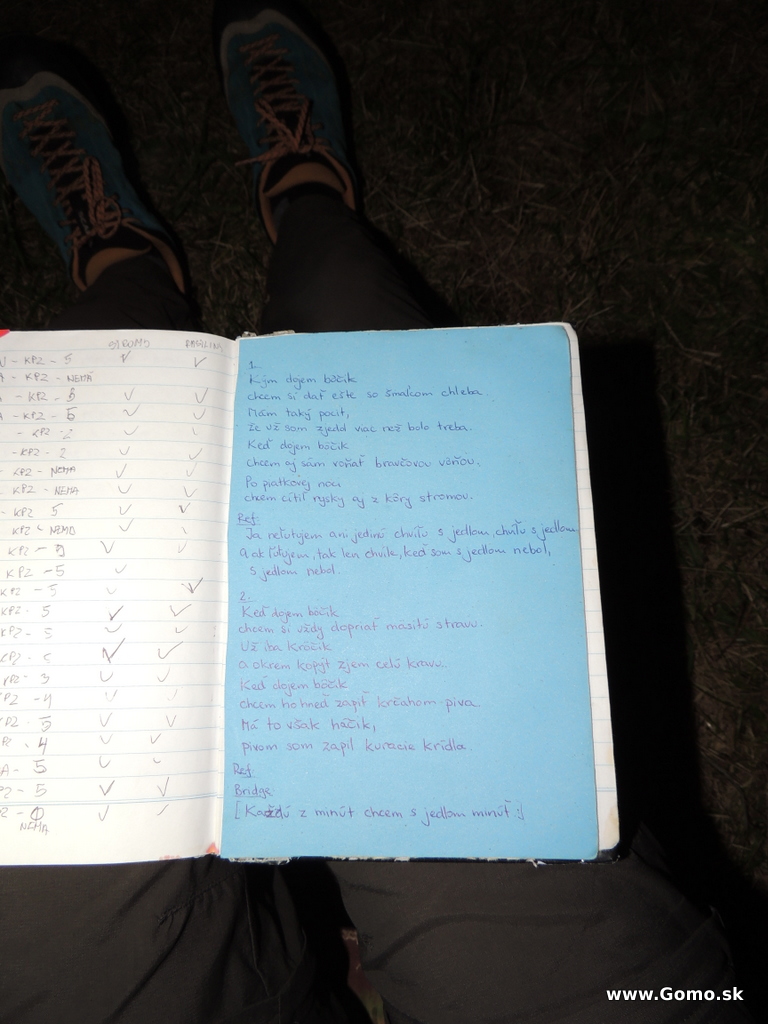 STROMY RASTLINY
- KPZ - 5
- KPZ - NEMÁ
- KPZ - 3
- KPZ - 5
- KPZ - 2
- KPZ - 2
- KPZ - NEMA
- KPZ - NEMA
KPZ 5
KPZ - NEMÁ
KPZ - 3
KPZ - 5
KPZ - 5
KPZ - 5
KPZ - 5
KPZ - 5
KPZ - 3
PZ - 4
PZ - 5
PZ - 4
A - 5
PZ - 5
PZ - 0
NEMÁ
1.
Kým dojem bôčik
chcem si dať ešte so šmalcom chleba.
Mám taký pocit,
že už som zjedol viac než bolo treba.
Keď dojem bôčik
Chcem aj sám voňať bravčovou vôňou.
Po piatkovej noci
chcem cítiť rysky aj z kôry stromov.
Ref:
Ja neľutujem ani jedinú chvíľu s jedlom, chvíľu s jedlom
a ak ľutujem, tak len chvíle, keď som s jedlom nebol,
s jedlom nebol.
2.
Keď dojem bôčik
chcem si vždy dopriať mäsitú stravu.
Už iba kročik
a okrem kopýt zjem celú kravu.
Keď dojem bôčik
chcem ho hneď zapiť krčahom piva.
Má to však háčik,
pivom som zapil kuracie krídla.
Ref:
Bridge
[Každú z minút chcem s jedlom minúť :]
www.Gomo.sk